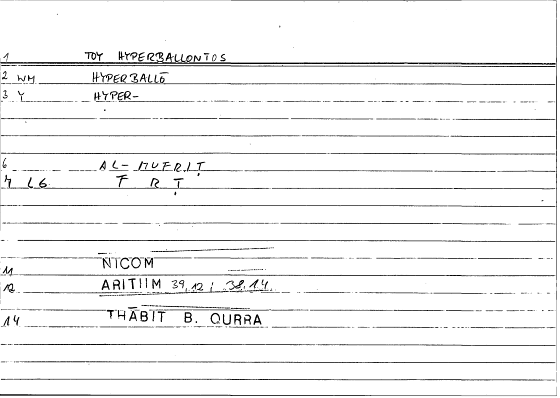 1 TOY HYPERBALLONTOS
2 WM HYPERBALLŌ
3 Y HYPER-
6 AL-MUFRIṬ
7 L6 F R Ṭ
11 NICOM
12 ARITIIM 39,12; 38,14.
14 THĀBIT B. QURRA